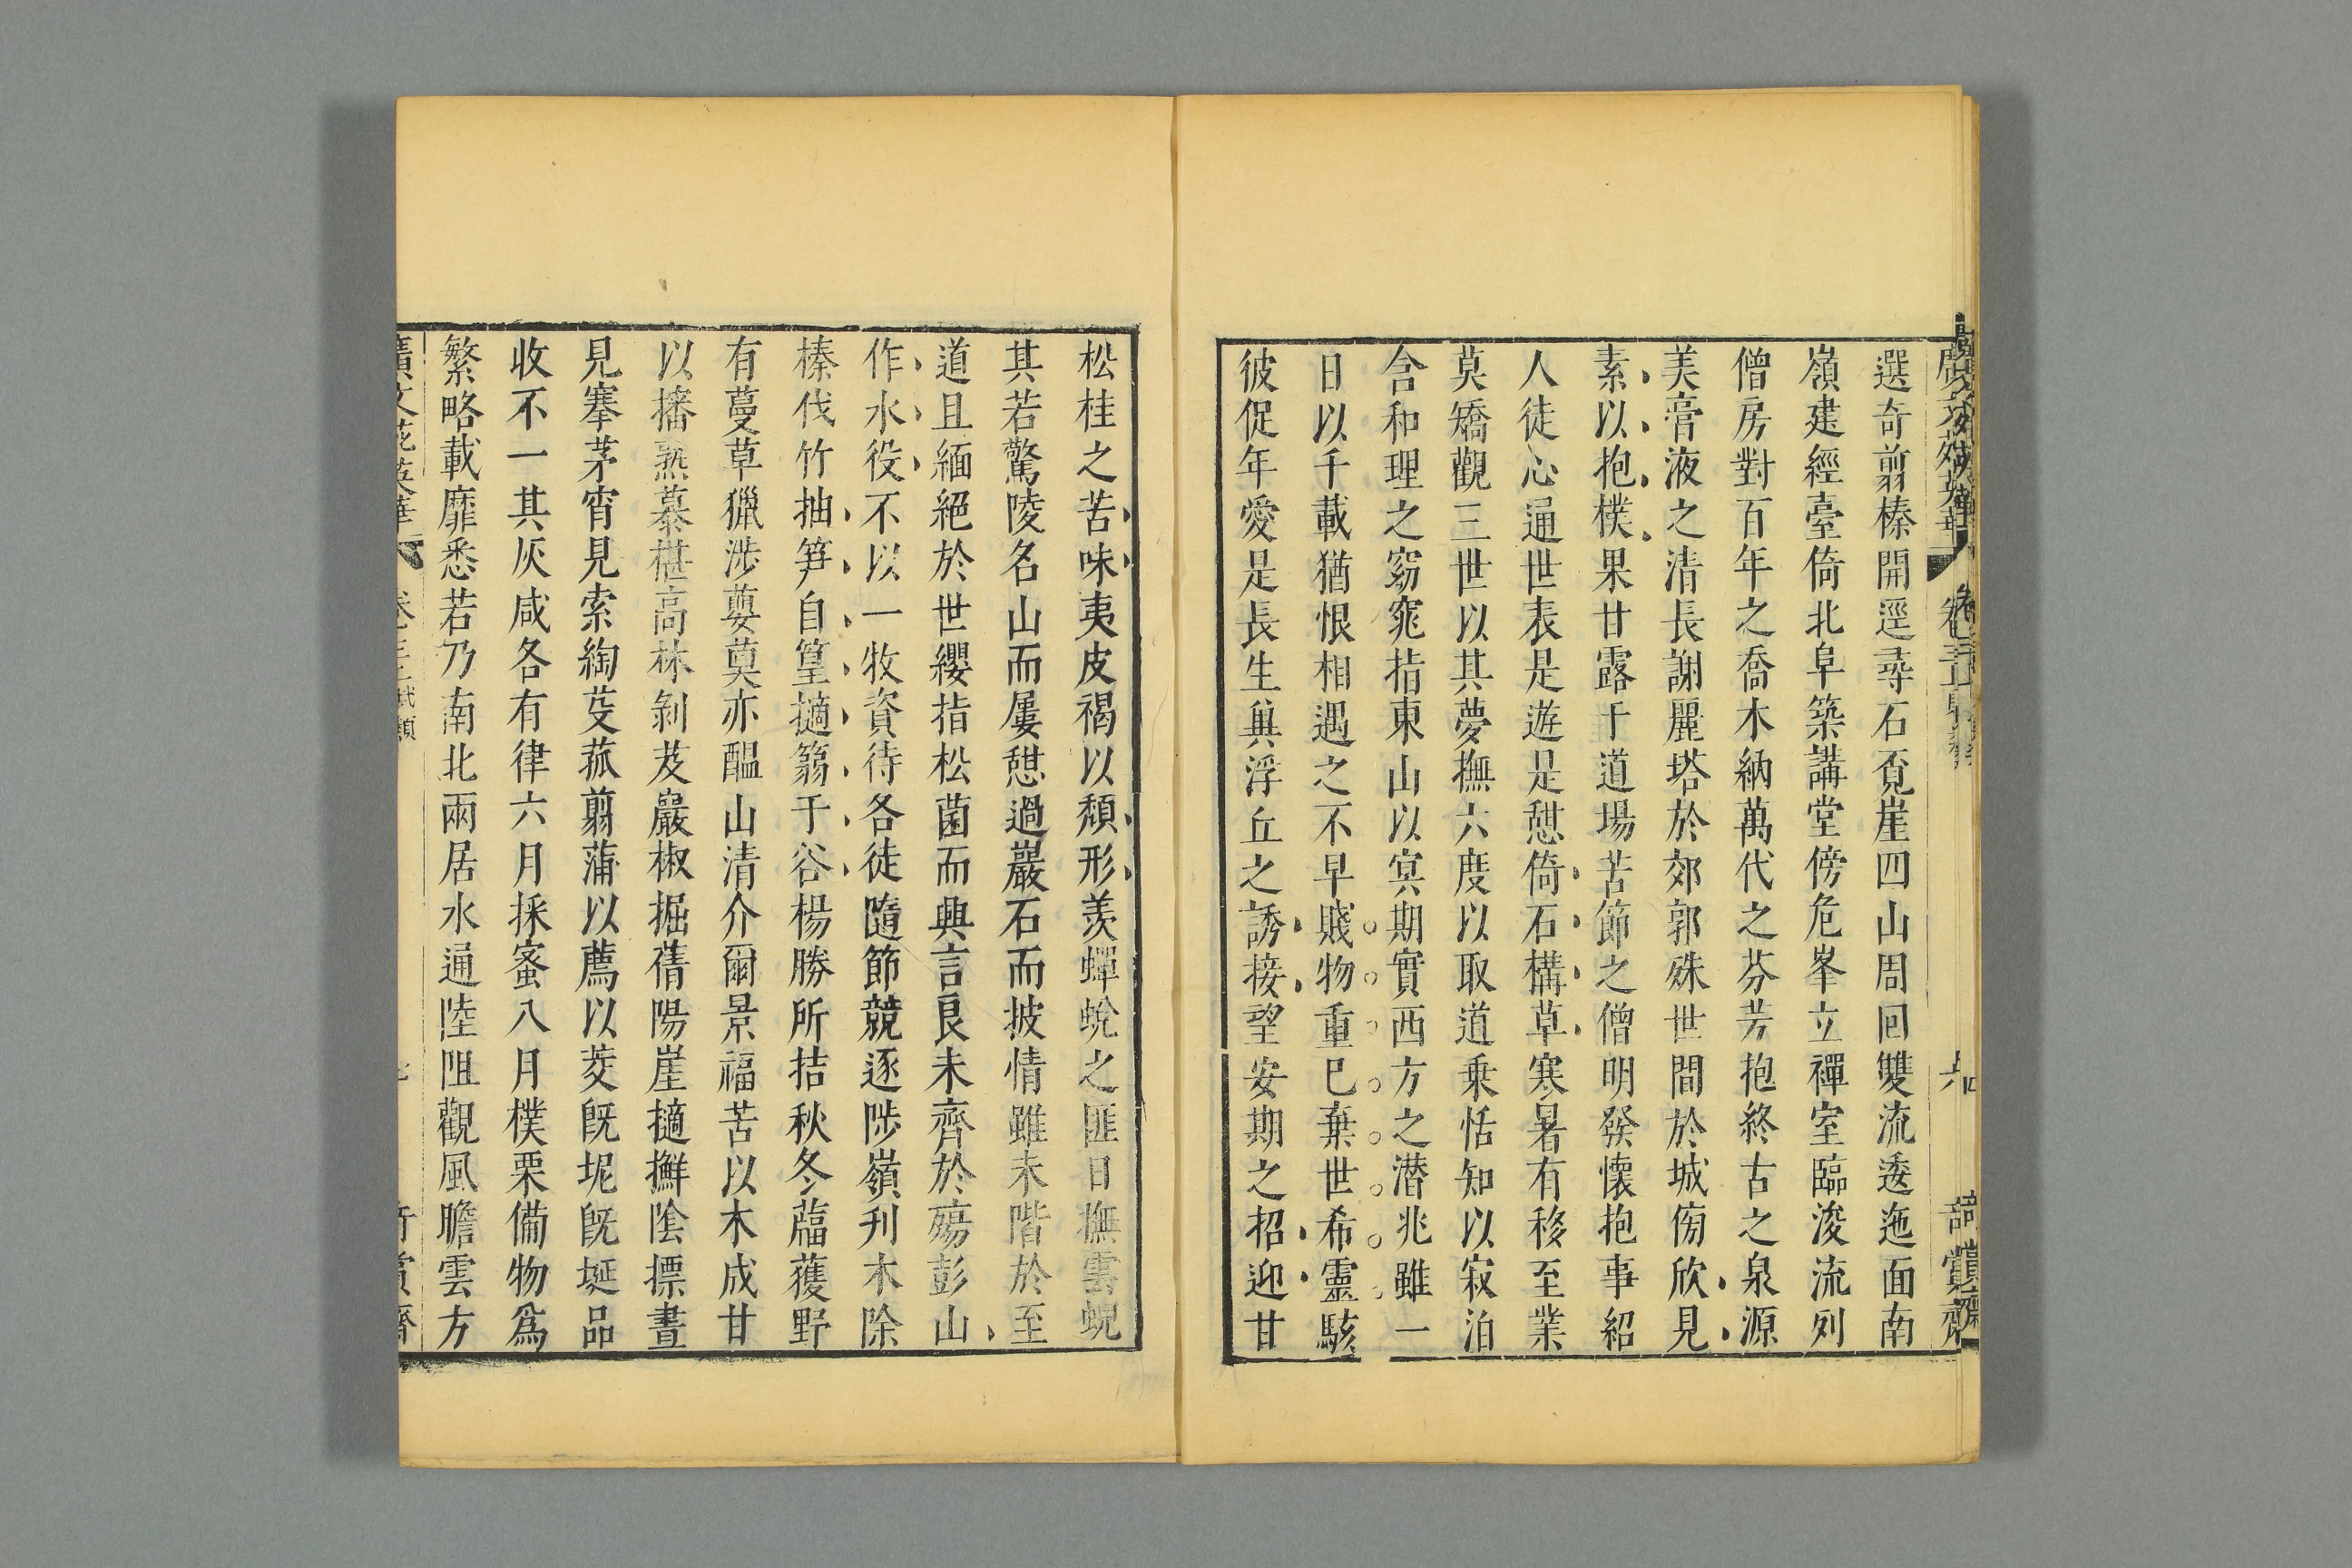 選奇翦榛開逕尋石覓崖四山周回雙流逶迤面南
嶺建經臺倚北阜築講堂傍危峯立禪室臨浚流列
僧房對百年之喬木納萬代之芬芳抱終古之泉源
美膏液之清長謝麗塔於郊郭殊世間於城傍欣見
素以抱樸果甘露于道場苦節之僧明發懷抱事紹
人徒心通世表是遊是憇倚石構草寒暑有移至業
莫矯觀三世以其夢撫六度以取道乗恬知以寂泊
含和理之窈窕指東山以冥期實西方之潛兆雖一
日以千載猶恨相遇之不早賤物重已棄世希靈駭
彼促年愛是長生兾浮丘之誘接望安期之招迎甘
松桂之苦味夷皮褐以頹形羨蟬蛻之匪日撫雲蜺
其若驚陵名山而屢憇過巖石而披情雖未階於至
道且緬絕於世纓指松菌而興言良未齊於殤彭山
作水役不以一牧資待各徒隨節競逐陟嶺刋木除
榛伐竹抽笋自篁擿篛于谷楊勝所拮秋冬蘊穫野
有蔓草獵涉蘡薁亦醖山清介爾景福苦以木成甘
以㩥熟慕椹高林剝芨巖椒掘蒨陽崖擿擶隂摽晝
見搴茅宵見索綯芟菰翦蒲以薦以茭旣坭旣埏品
收不一其灰咸各有律六月採蜜八月樸栗備物爲
繁略載靡悉若乃南北兩居水通陸阻觀風瞻雲方
廣文苑英華 卷三 賦類